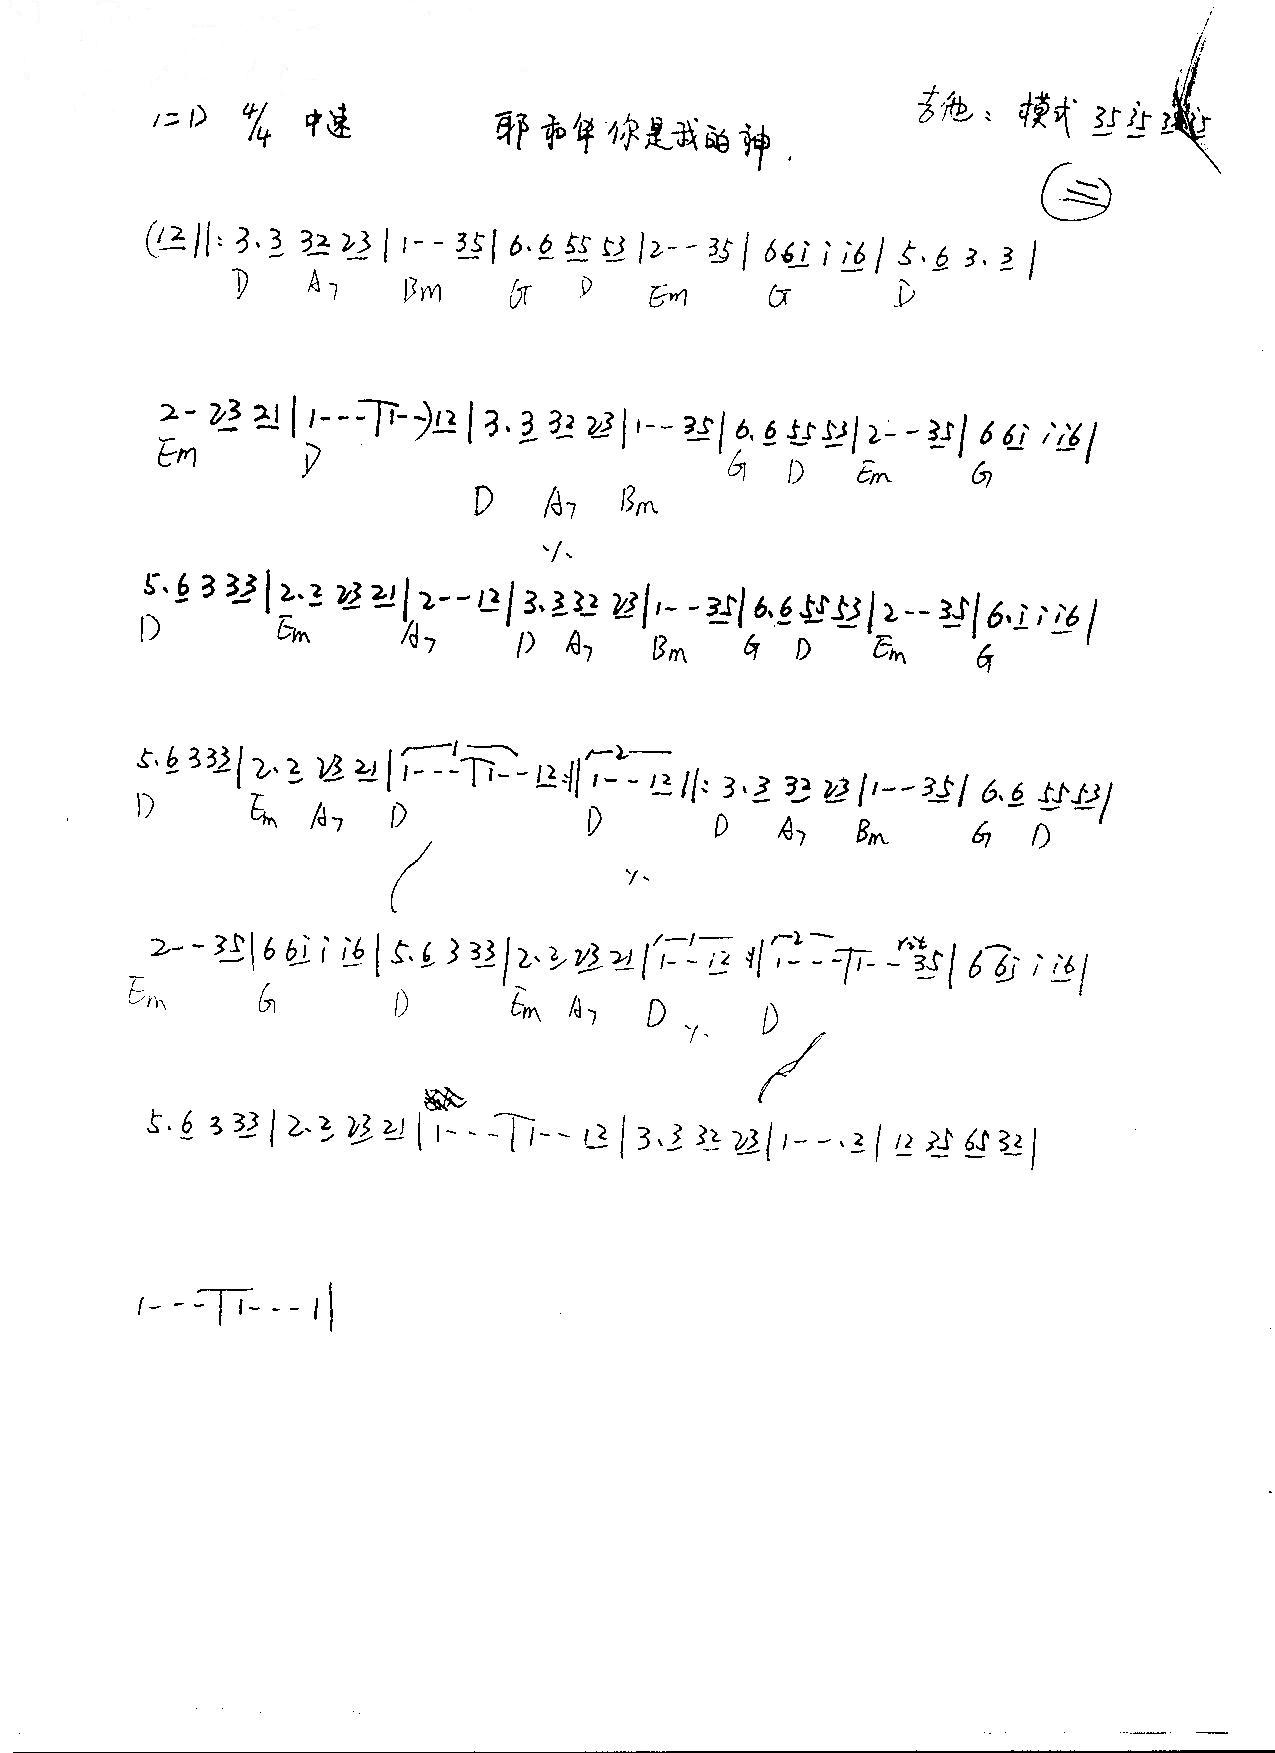 1=D 4/4 中速 耶和华你是我的神. 吉他: 模式 35 i5 35 i5
(三)
(12||: 3.3 32 23 | 1-- 35 | 6.6 55 53 | 2-- 35 | 6 6i i i6 | 5.6 3.3 |
D A7 Bm G D Em G D
2- 23 21 | 1--- | 1--) 12 | 3.3 32 23 | 1-- 35 | 6.6 55 53 | 2-- 35 | 6 6i i i6 |
Em D G D Em G
D A7 Bm
·/.
5.6 3 33 | 2.2 23 21 | 2-- 12 | 3.3 32 23 | 1-- 35 | 6.6 55 53 | 2-- 35 | 6.i i i6 |
D Em A7 D A7 Bm G D Em G
5.6 3 33 | 2.2 23 21 | 1 1--- | 1-- 12 :|| 2 1-- 12 ||: 3.3 32 23 | 1-- 35 | 6.6 55 53 |
D Em A7 D D D A7 Bm G D
·/.
2-- 35 | 6 6i i i6 | 5.6 3 33 | 2.2 23 21 | 1 1-- 12 :|| 2 1--- | 1-- rit 35 | 6 6i i i6 |
Em G D Em A7 D ·/. D
5.6 3 33 | 2.2 23 21 | 1--- | 1-- 12 | 3.3 32 23 | 1--.2 | 12 35 65 32 |
1--- | 1--- 1 |